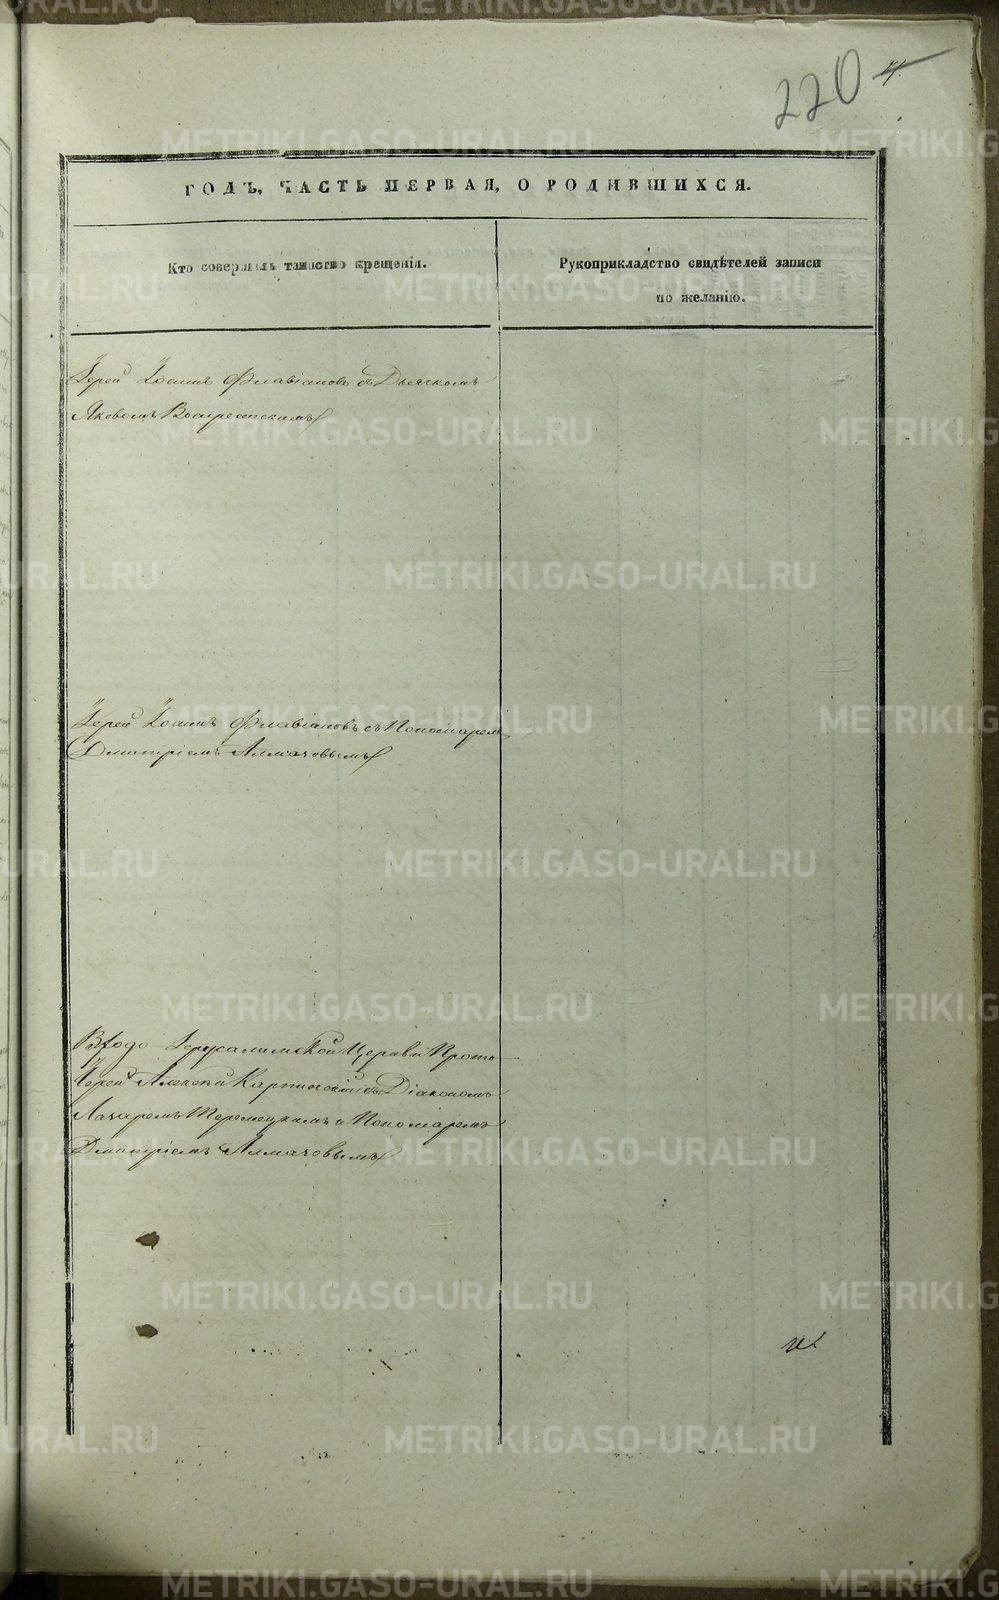 220
4.
ГОДЪ, ЧАСТЬ ПЕРВАЯ, О РОДИВШИХСЯ.
Кто совершалъ таинство крещенія.
Рукоприкладство свидѣтелей записи
по желанію.
Іерей Іоаннъ Флавіановъ съ Дьячкомъ
Яковомъ Воскресенскимъ
Іерей Іоаннъ Флавіановъ съ Пономарем
Димитріемъ Алмазовымъ
Входо-Іерусалимской Церкви Прото-
Іерей Алексѣй Карпинскій съ Діакономъ
Лазаремъ Теремецкимъ и Пономаремъ
Димитріемъ Алмазовымъ
METRIKI.GASO-URAL.RU